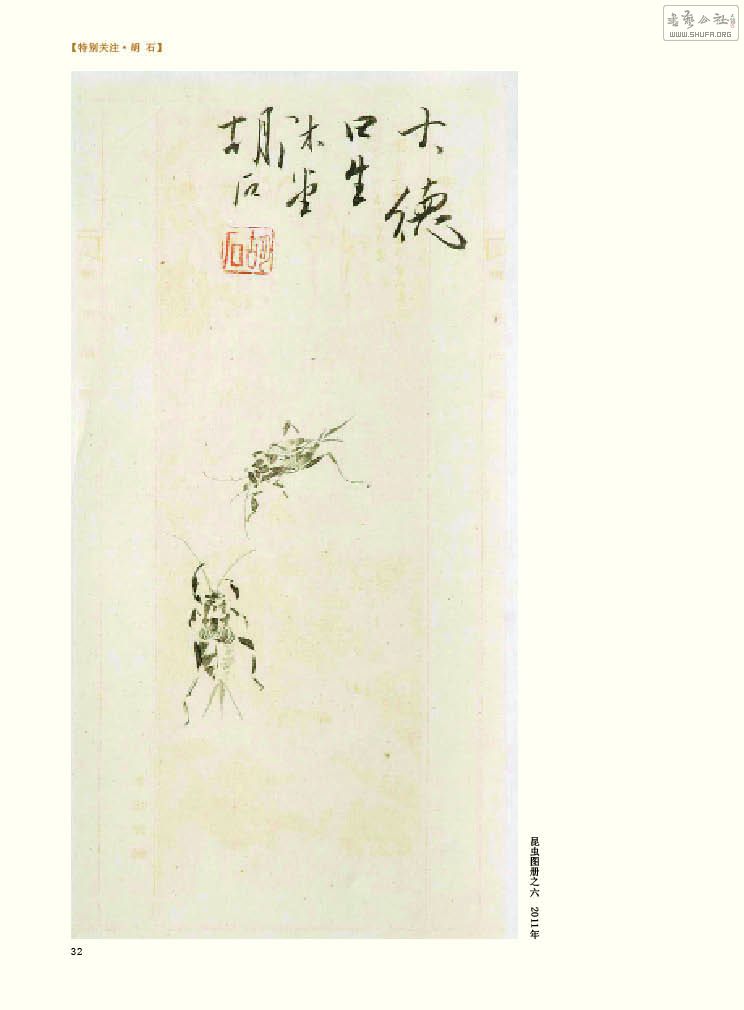 書藝公社
WWW.SHUFA.ORG
【特别关注·胡 石】
大德
曰生
沐堂
胡石
胡石
昆虫图册之六 2011年
32